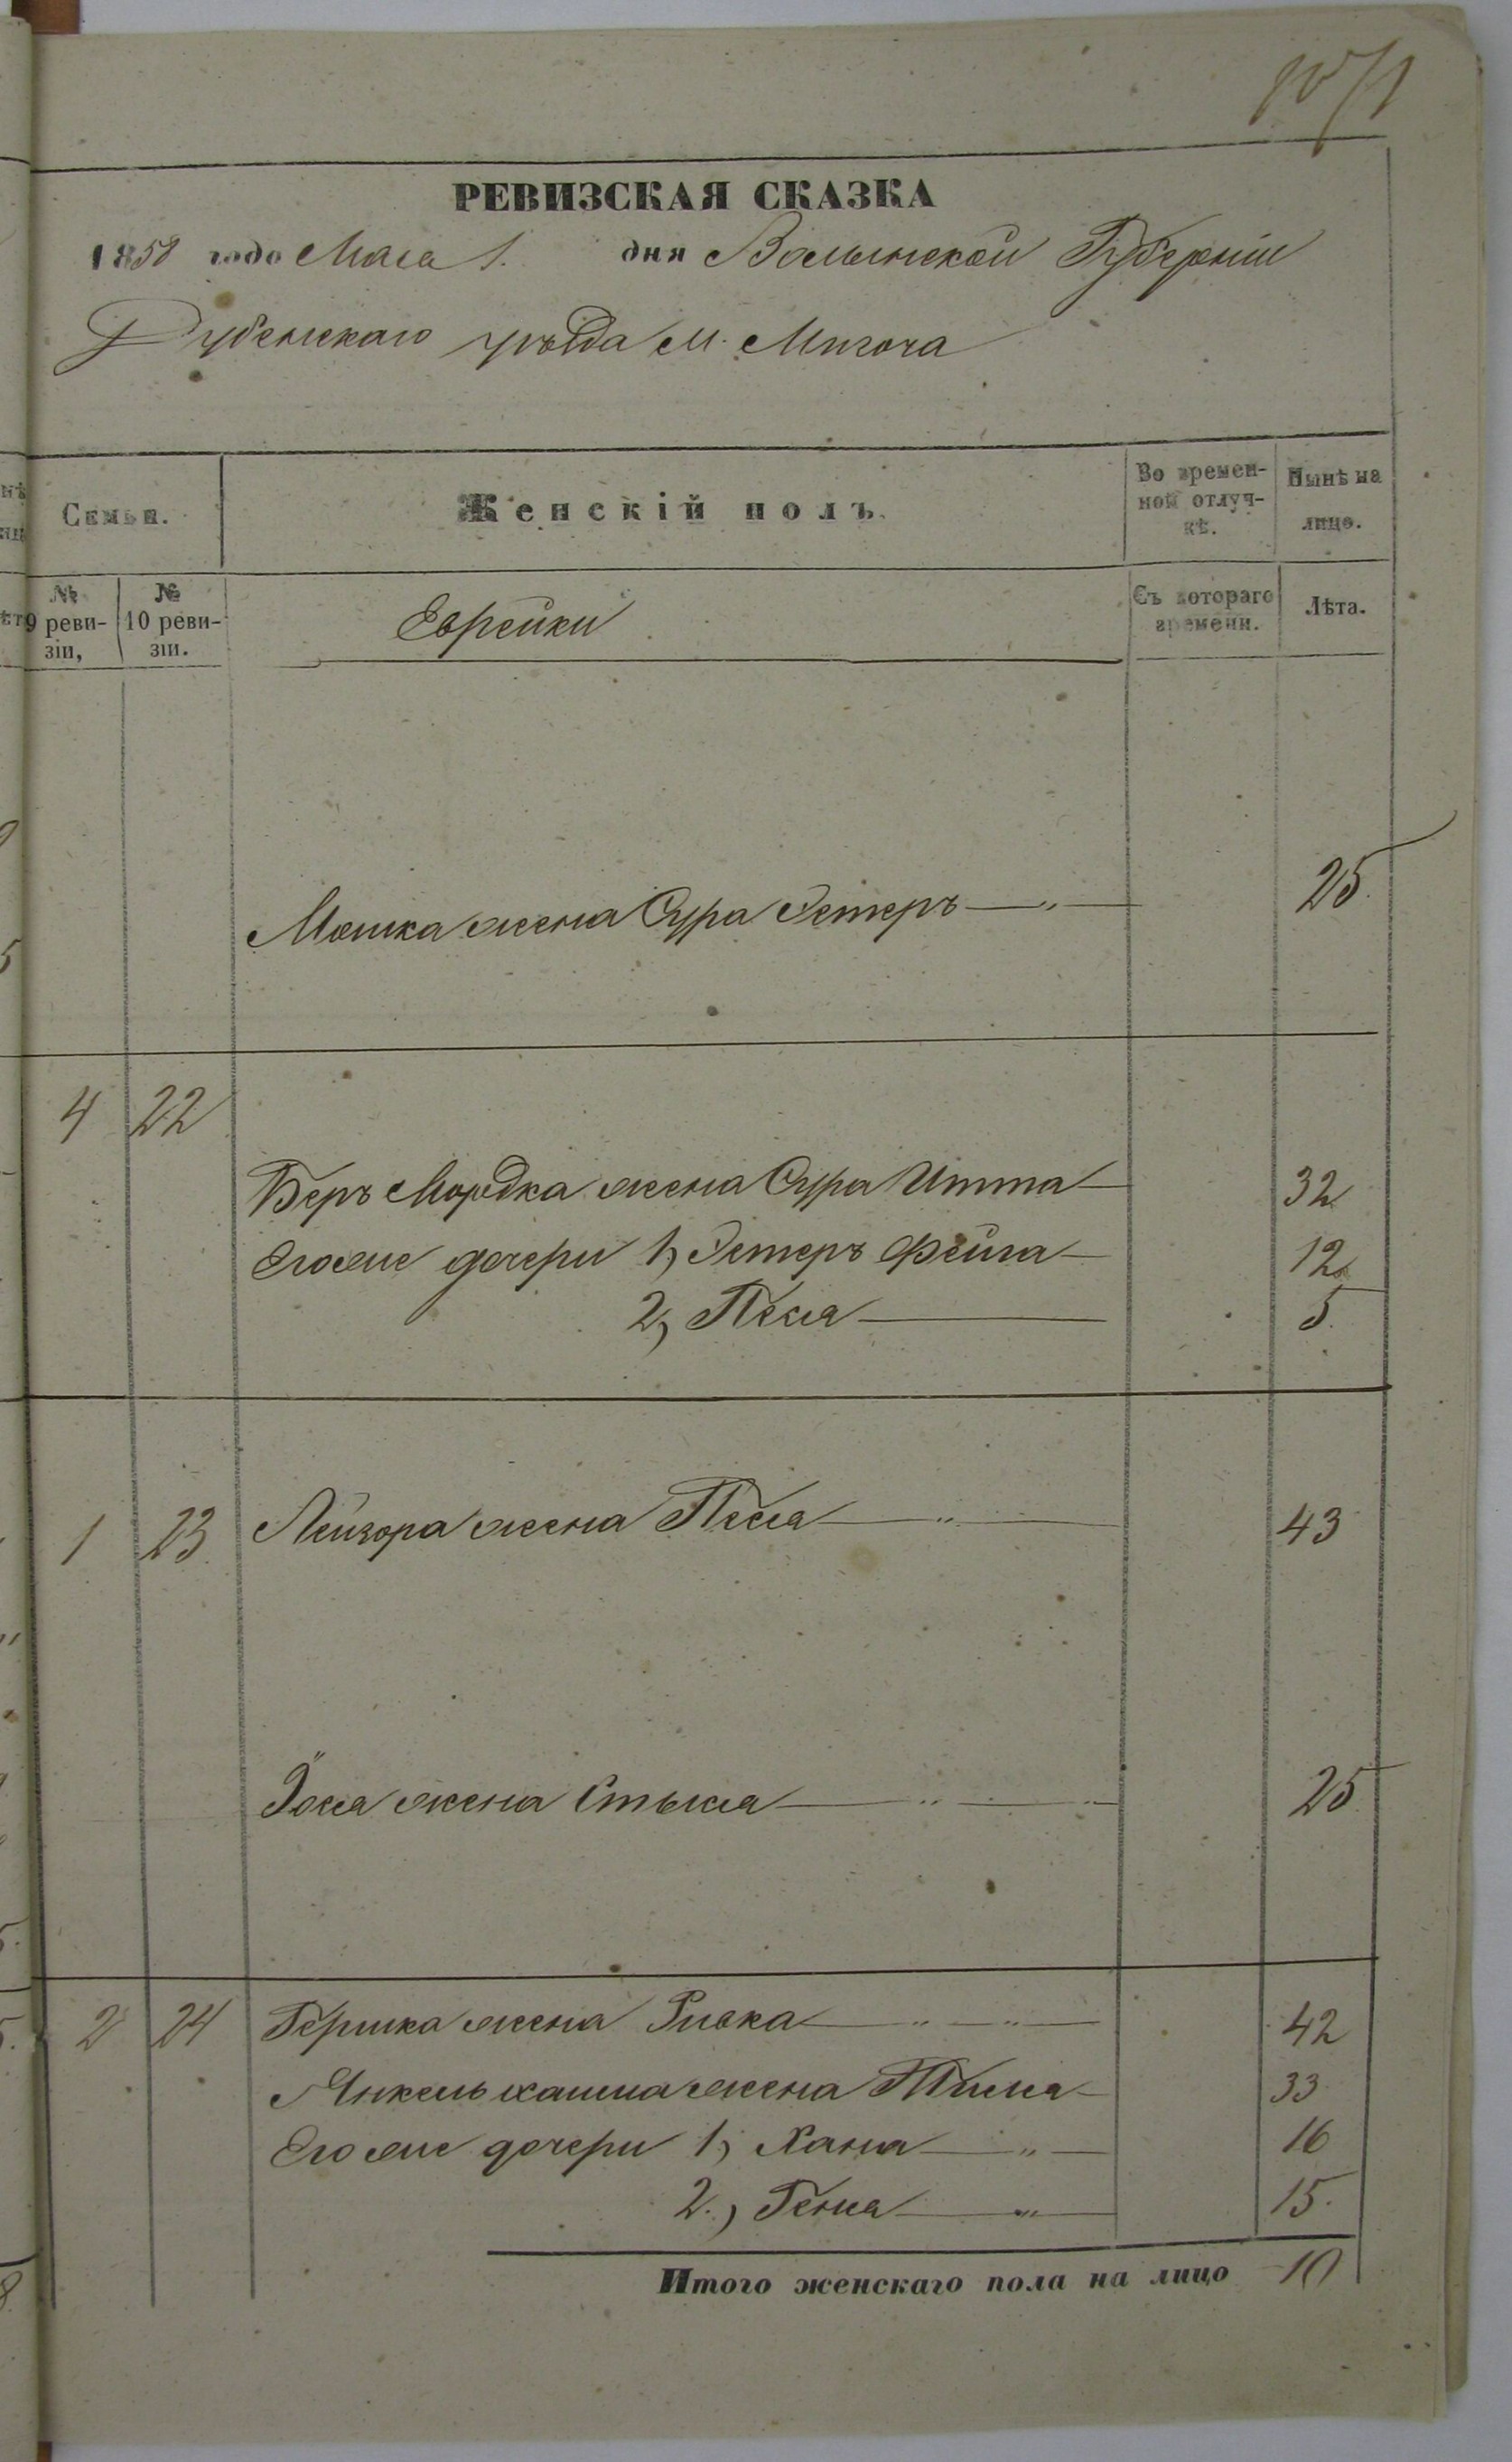 1071
РЕВИЗСКАЯ СКАЗКА
1858 года Маія 1. дня Волынской Губерніи
Дубенскаго уѣзда м. Мизоча
Семьи.
Женскій полъ.
Во времен-
ной отлуч-
кѣ.
Нынѣ на
лицо.
№
9 реви-
зіи,
№
10 реви-
зіи.
Еврейки
Съ котораго
времени.
Лѣта.
Мошка жена Сура Эстеръ 25.
4 22
Беръ Мордка жена Сура Итта 32
Его же дочери 1, Эстеръ Фейга 12
2, Песя 5.
1 23 Лейзора жена Песя 43
Іося жена Стыся 25
2 24 Гершка жена Ривка 42
Янкель жена 33
Его же дочери 1, Хана 16
2., Геня 15.
Итого женскаго пола на лицо 10